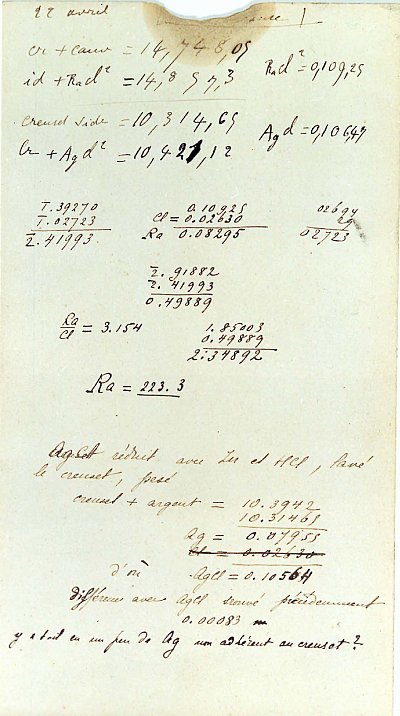 22 avril
cr + couv = 14,748,05
id + Rad² = 14,857,3
Rad² = 0,109,25
creuset vide = 10,314,65
Cr + Agd² = 10,421,12
Agd = 0,10647
1̄.39270
1̄.02723
2̄.41993
0.10925
Cl = 0.02630
Ra 0.08295
02694
29
02723
2̄.91882
2̄.41993
0.49889
Ra/Cl = 3.154
1.85003
0.49889
2.34892
Ra = 223.3
AgCl réduit avec Zn et HCl, lavé
le creuset, pesé
creuset + argent = 10.3942
10.31465
Ag = 0.07955
Cl = 0.02630
d'où AgCl = 0.10564
différence avec AgCl trouvé précédemment
0.00083
y a t-il eu un peu de Ag non adhérent au creuset ?